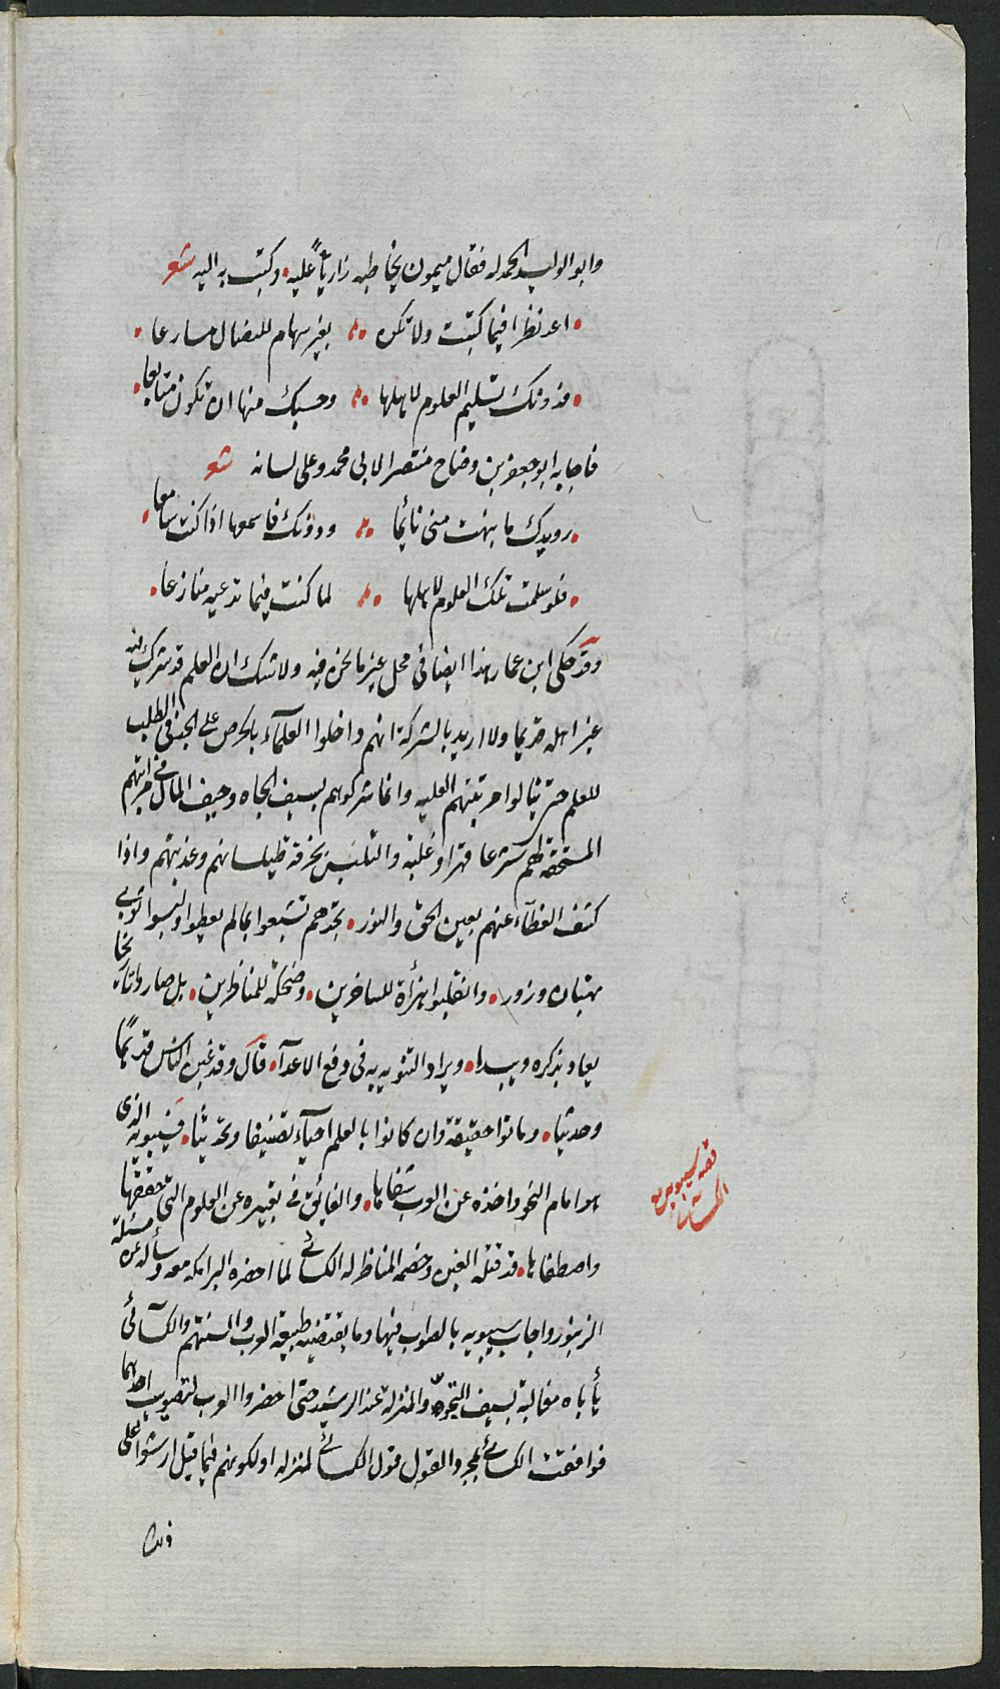 وابو الوليد الحمد له فقال ميمون يخاطبه زارياً عليه وكتب به اليه شعر
اعد نظرا فيما كتبت ولا تكن بغير سهام للنضال مسارعا
فدونك تسليم العلوم لاهلها وحسبك منها ان تكون متابعا
فاجابه ابو جعفر بن وضاح منتصرا لابي محمد وعلى لسانه شعر
رويدك ما نبهت مني نائما ودونك فاسمعها اذا كنت سامعا
فلو سلمت تلك العلوم لاهلها لما كنت فيما تدعيه منازعا
وقد حكى ابن عمار هذا ايضا في محل غير ما نحن فيه ولا شك ان العلم قد شرك فيه
غير اهله قديما ولا اريد بالشركة انهم داخلوا العلماء بالحرص على الجد في الطلب
للعلم حتى ينالوا مرتبتهم العليه وانما شركوهم بسيف الجاه وحيف المال في مراتبهم
المستحقة لهم شرعا قهرا وغلبة والتلبس بخرقة طيلسانهم وعذبتهم واذا
كشف الغطاء عنهم بعين الحق والنور تجدهم تشبعوا بما لم يعطوا ولبسوا ثوبي
بهتان وزور وانقلبوا هزأة للساخرين وضحكة للناظرين بل صار ذلك
يعاد بذكره ويبدا ويراد التنويه به في دفع الاعداء قال وقد غبن الناس قديما
وحديثا وماتوا حقيقة وان كانوا بالعلم احياء تصنيفا وتحديثا فسيبويه الذي
هو امام النحو واخذه عن العرب شفاها والفايق في تعبيره عن العلوم التي حققها
واصطفاها قد قتله الغبن وخصمه المناظر له الكسائي لما احضره البرامكه معه وسأله عن مسئلة
الزنبور واجاب سيبويه بالصواب فيها وما يقتضيه طبيعة العرب والسنتهم والكسائي
يأباه مغالبة بسيف التجوه والمنزلة عند الرشيد حتى احضروا العرب لتصويب احدهما
فوافقت الكسائي بمجرد القول قول الكسائي لمنزله او لكونهم فيما قيل ارشوا على
قصة سيبويه مع الكسائي